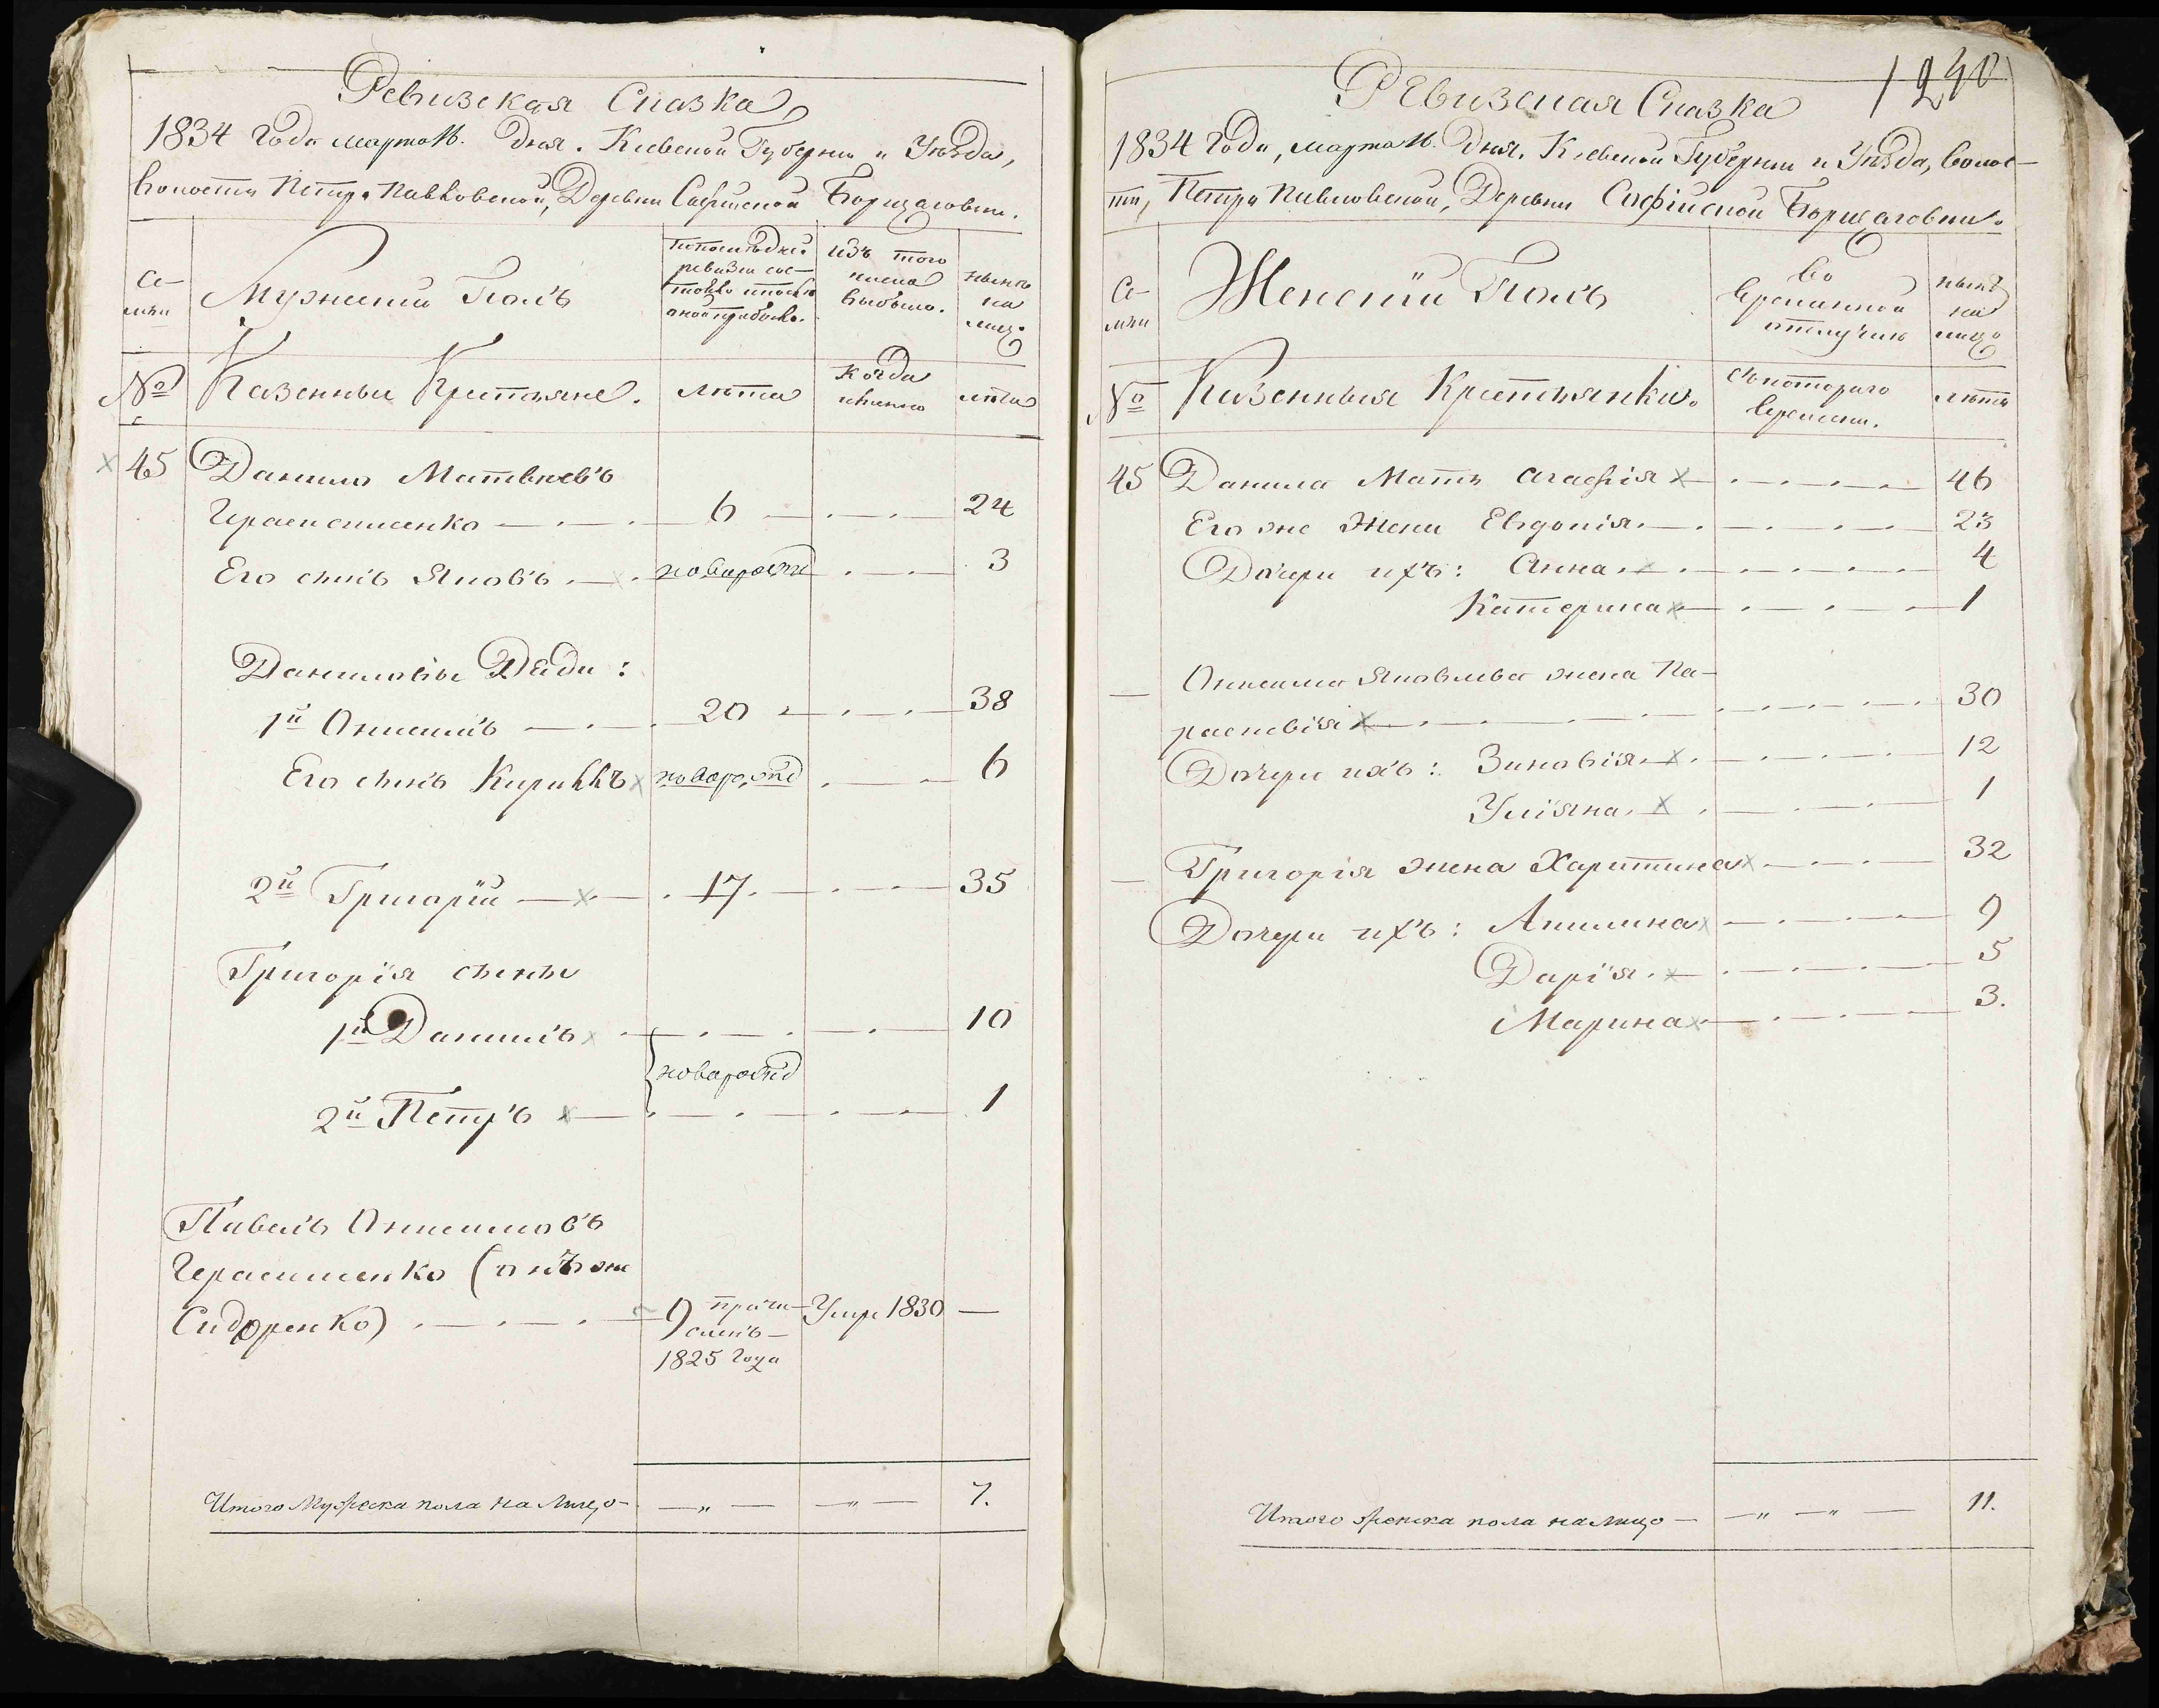 Ревизская Сказка
1834 года марта 16. дня. Киевской Губернии и Уѣзда,
волости Петро Павловской, Деревни Софіиской Борщаговки.
Се-
мьи
Мужескій Полъ
По последней
ревизіи сос-
тояло и после
оной прибыло.
изъ того
числа
выбыло.
нынѣ
на
лицо
№
Казенные Крестьяне.
лѣта
когда
именно
лѣта
45 Данило Матвѣевъ
Герасименко 6 24
Его сынъ Яковъ новорожд 3
Даниловы Дяди:
1й Онисимъ 20 38
Его сынъ Кириллъ новорожд 6
2й Григорій 17 35
Григорія сыны
1й Данилъ 10
новорожд
2й Петръ 1
Павелъ Онисимовъ
Герасименко (онъ же
Сидоренко) 9 причи- Умре 1830 —
сленъ
1825 года
Итого Мужеска пола на лицо — „ — — „ — 7.
1240
Ревизская Сказка
1834 года, марта 16. дня. Киевской Губернии и Уѣзда, волос-
ти, Петро Павловской, Деревни Софіиской Борщаговки.
Се-
мьи
Женскій Полъ
Во
временной
отлучкѣ
нынѣ
на
лицо
№
Казенныя Крестьянки.
съ котораго
времени.
лѣта
45 Данила Мать Агафія 46
Его же Жена Евдокія 23
Дочери ихъ: Анна 4
Катерина 1
Онисима Яковлева жена Па-
раскевія 30
Дочери ихъ: Зиновія 12
Уліяна 1
Григорія жена Харитина 32
Дочери ихъ: Акилина 9
Дарія 5
Марина 3.
Итого женска пола на лицо — — „ — „ — 11.